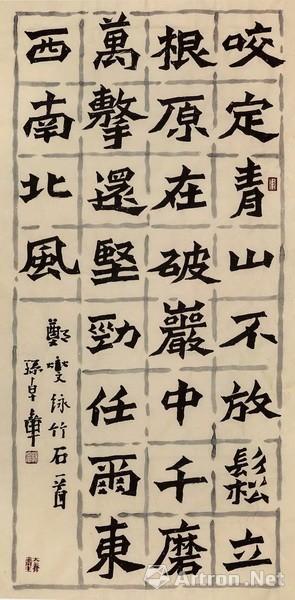 咬定青山不放鬆立
根原在破巖中千磨
萬擊還堅勁任爾東
西南北風
鄭燮詠竹石一首
孫卓
Artron.Net